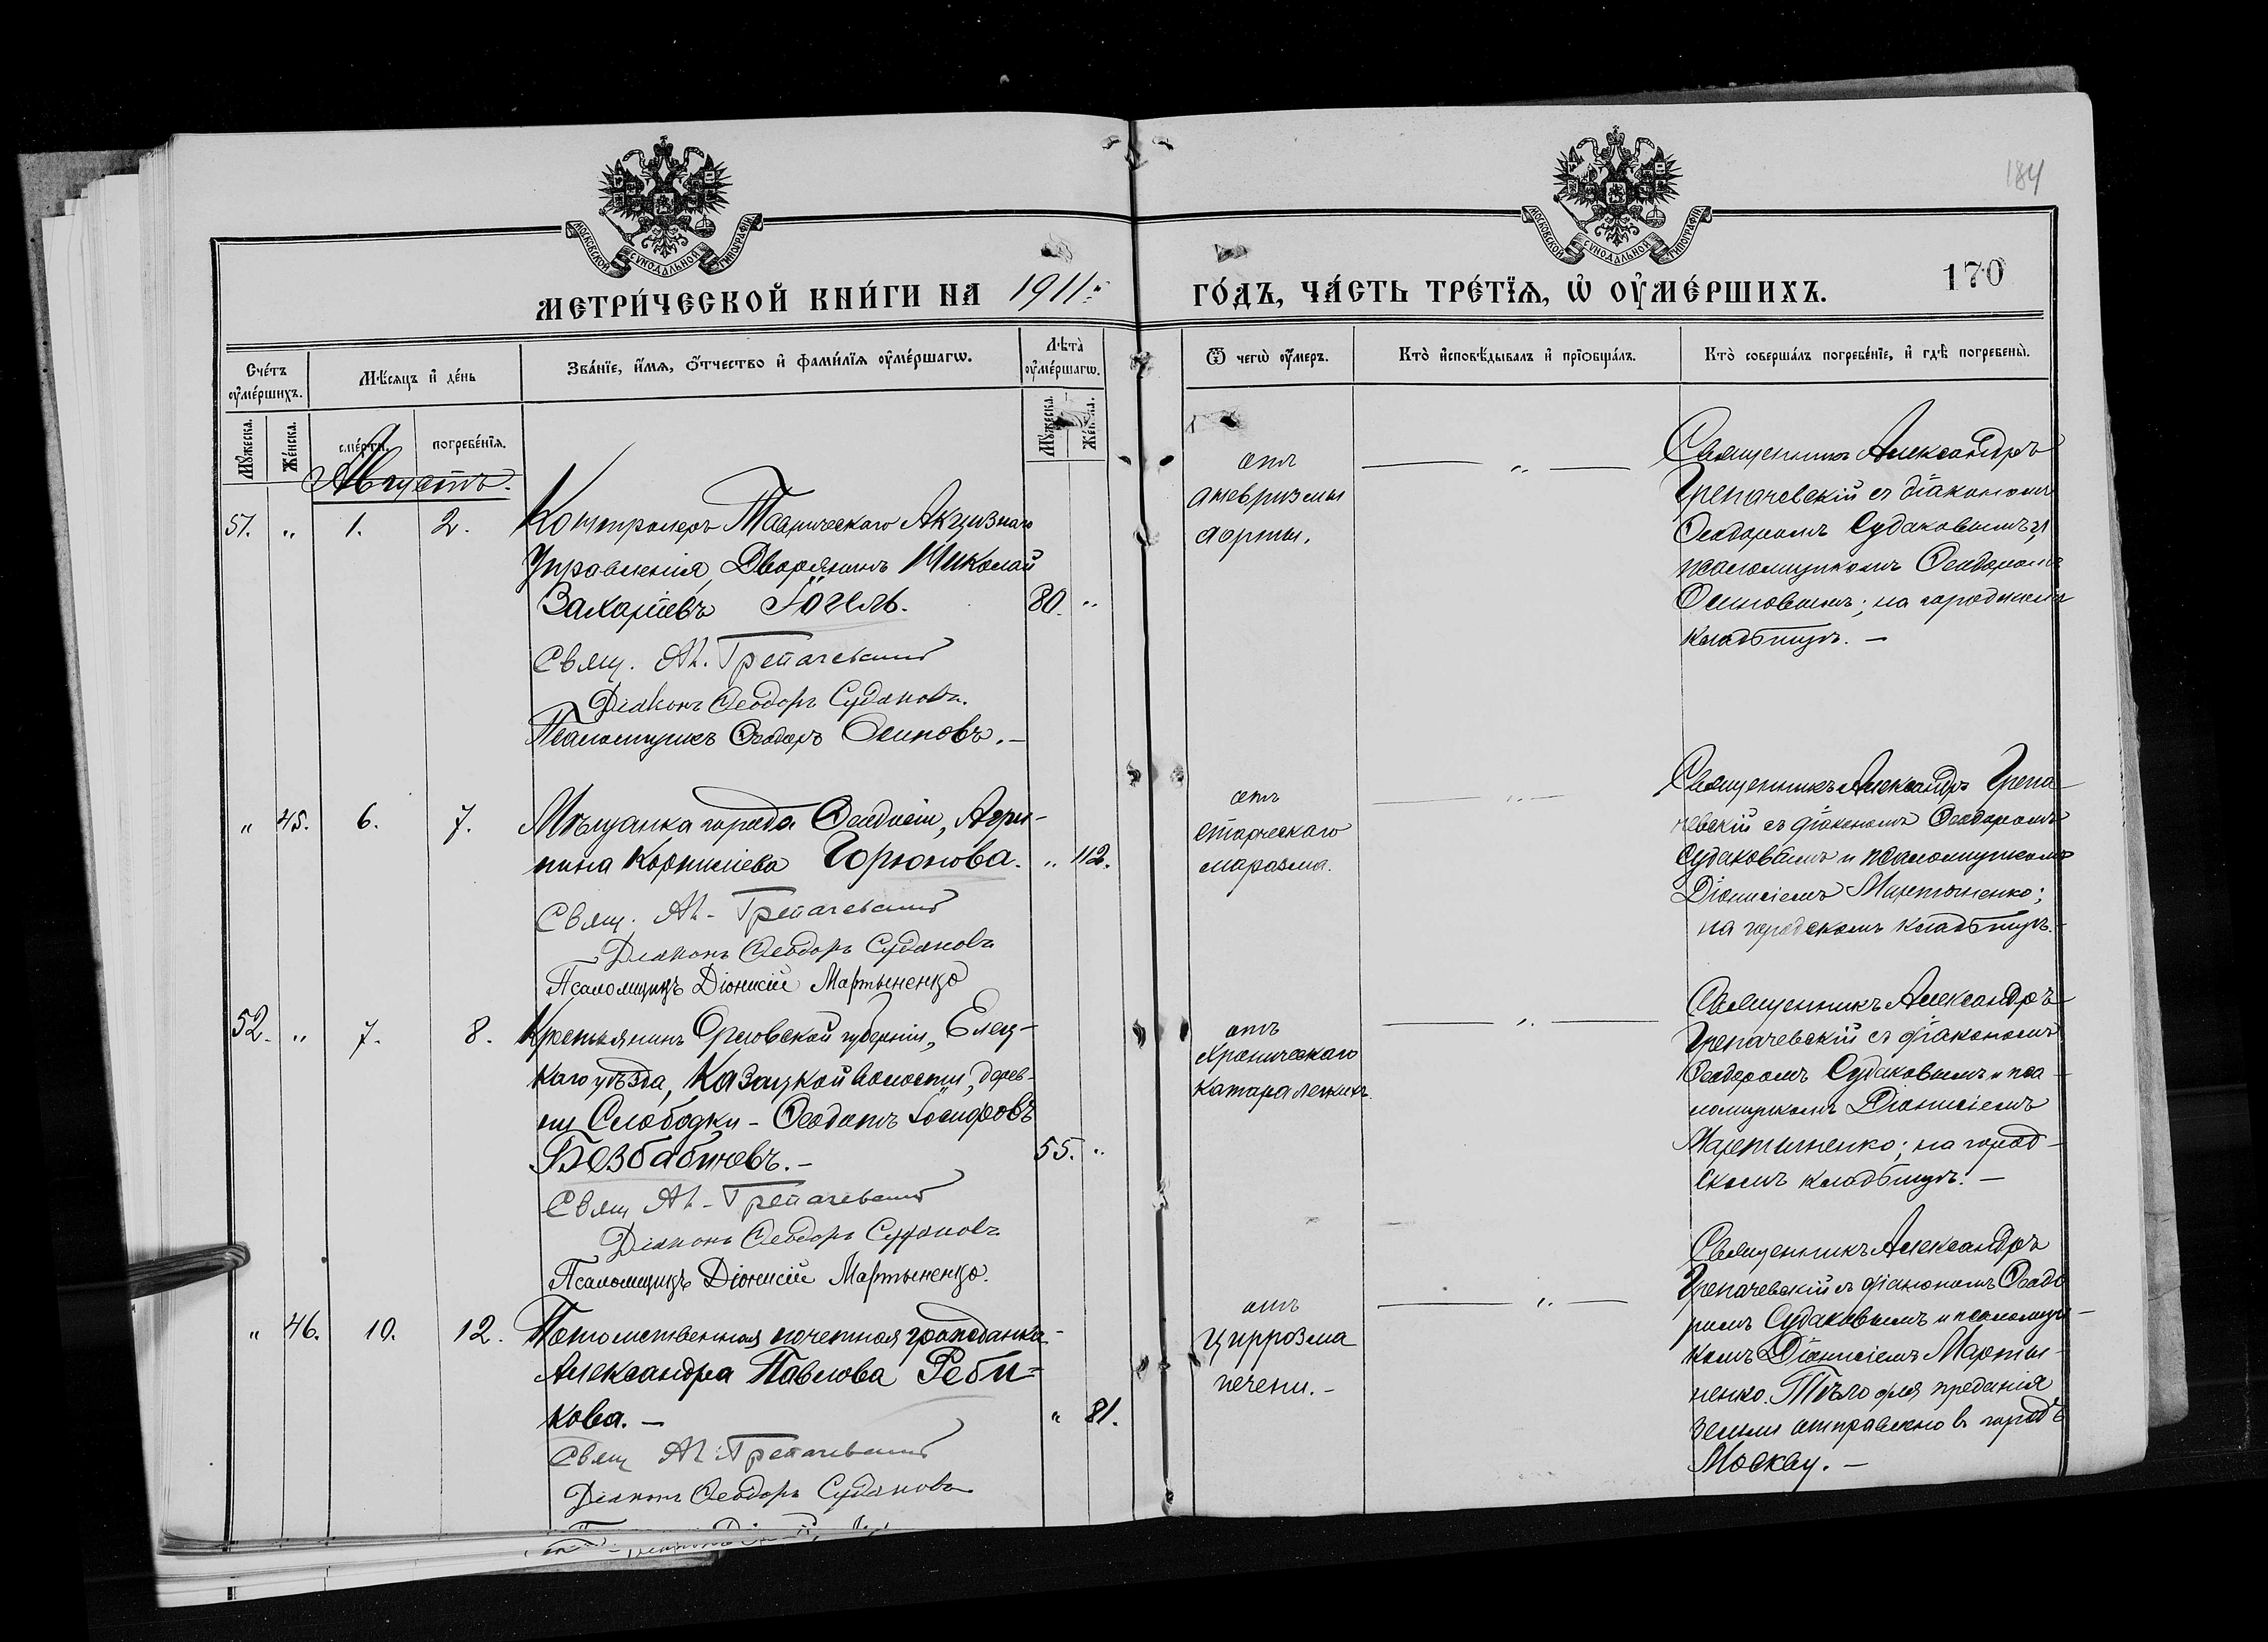 184
МОСКОВСКОЙ СѴНОДАЛЬНОЙ ТИПОГРАФІИ
МОСКОВСКОЙ СѴНОДАЛЬНОЙ ТИПОГРАФІИ
МЕТРИ́ЧЕСКОЙ КНИ́ГИ НА 1911 й ГО́ДЪ, ЧА́СТЬ ТРЕ́ТЇѦ, Ѡ҆ ОУ҆МЕ́РШИХЪ.
170
Сче́тъ оу҆ме́ршихъ.
Мѣ́сяцъ и҆ де́нь
Зва́нїе, и҆́мя, ѻ҆́тчество и҆ фами́лїя оу҆ме́ршагѡ.
Лѣ́та оу҆ме́ршагѡ.
Ѿ чегѡ̀ оу҆́меръ.
Кто̀ и҆сповѣ́дывалъ и҆ прїѡбща́лъ.
Кто̀ соверша́лъ погребе́нїе, и҆ гдѣ̀ погребены̀.
Мꙋ́жеска.
Же́нска.
сме́рти.
погребе́нїя.
Мꙋ́жеска.
Же́нска.
Августъ.
51. " 1. 2. Контролеръ Таврическаго Акцизнаго
Управленія, Дворянинъ Николай
Захаріевъ Гогель. 80. "
Свящ. Ал. Грепачевскій
Діаконъ Ѳеодоръ Судаковъ.
Псаломщикъ Ѳеодоръ Осиповъ. –
отъ
аневризмы
аорты.
— " —
Священникъ Александръ
Грепачевскій съ діакономъ
Ѳеодоромъ Судаковымъ и
псаломщикомъ Ѳеодоромъ
Осиповымъ; на городскомъ
кладбищѣ. –
" 45. 6. 7. Мѣщанка города Ѳеодосіи, Агри-
пина Корнилієва Горюнова. " 112.
Свящ. Ал. Грепачевскій
Діаконъ Ѳеодоръ Судаковъ
Псаломщикъ Діонисій Мартыненко
отъ
старческаго
маразма.
— " —
Священникъ Александръ Грепа-
чевскій съ діакономъ Ѳеодоромъ
Судаковымъ и псаломщикомъ
Діонисіемъ Мартыненко;
на городскомъ кладбищѣ. –
52. " 7. 8. Крестьянинъ Орловской губерніи, Елец-
каго уѣзда, Казацкой волости, дерев-
ни Слободки – Ѳеодотъ Іосифовъ
Безбабичевъ. – 55. "
Свящ Ал. Грепачевскій
Діаконъ Ѳеодоръ Судаковъ
Псаломщикъ Діонисій Мартыненко.
отъ
хроническаго
катара легкихъ.
— " —
Священникъ Александръ
Грепачевскій съ діакономъ
Ѳеодоромъ Судаковымъ и пса-
ломщикомъ Діонисіемъ
Мартыненко; на город-
скомъ кладбищѣ. –
" 46. 10. 12. Потомственная почетная гражданка-
Александра Павлова Реби=
кова. – " 81.
Свящ Ал. Грепачевскій
Діаконъ Ѳеодоръ Судаковъ
отъ
циррозма
печени. –
— " —
Священникъ Александръ
Грепачевскій съ діакономъ Ѳеодо
ромъ Судаковымъ и псаломщи-
комъ Діонисіемъ Марты-
ненко. Тѣло для преданія
земли отправлено въ городъ
Москву. –